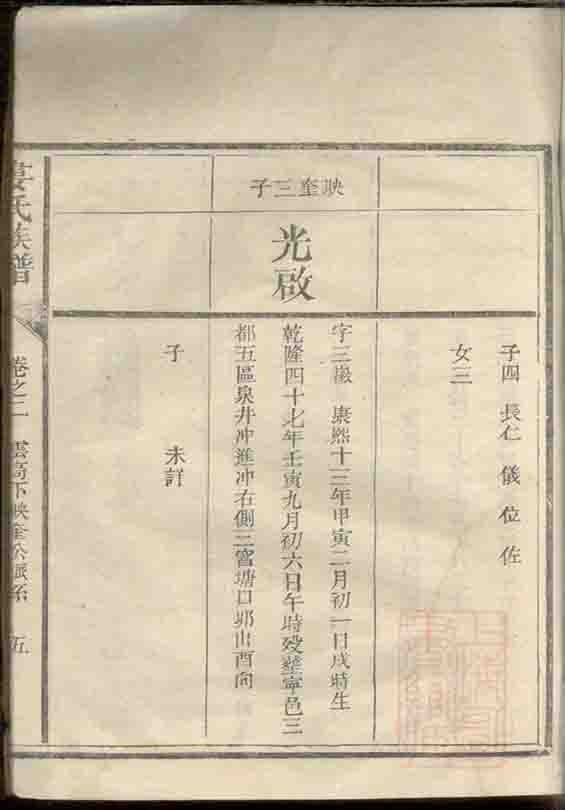 子四 長仁 儀 位 佐
女三
映奎三子
光啟
字三巖 康熙十三年甲寅二月初一日戌時生
乾隆四十七年壬寅九月初六日午時歿塟寧邑三
都五區泉井冲進冲右側三官塘口卯山酉向
子 未詳
姜氏族譜 卷之二 雲高下映奎公派系 五